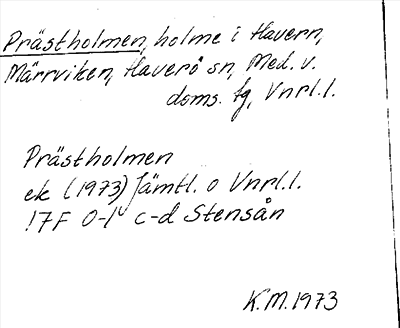 Prästholmen, holme i Havern,
Märrviken, Haverö sn, Med. v.
doms. tg, Vnrl. l.
Prästholmen
ek (1973) Jämtl. o Vnrl. l.
17F 0-1 c-d Stensån
K.M. 1973